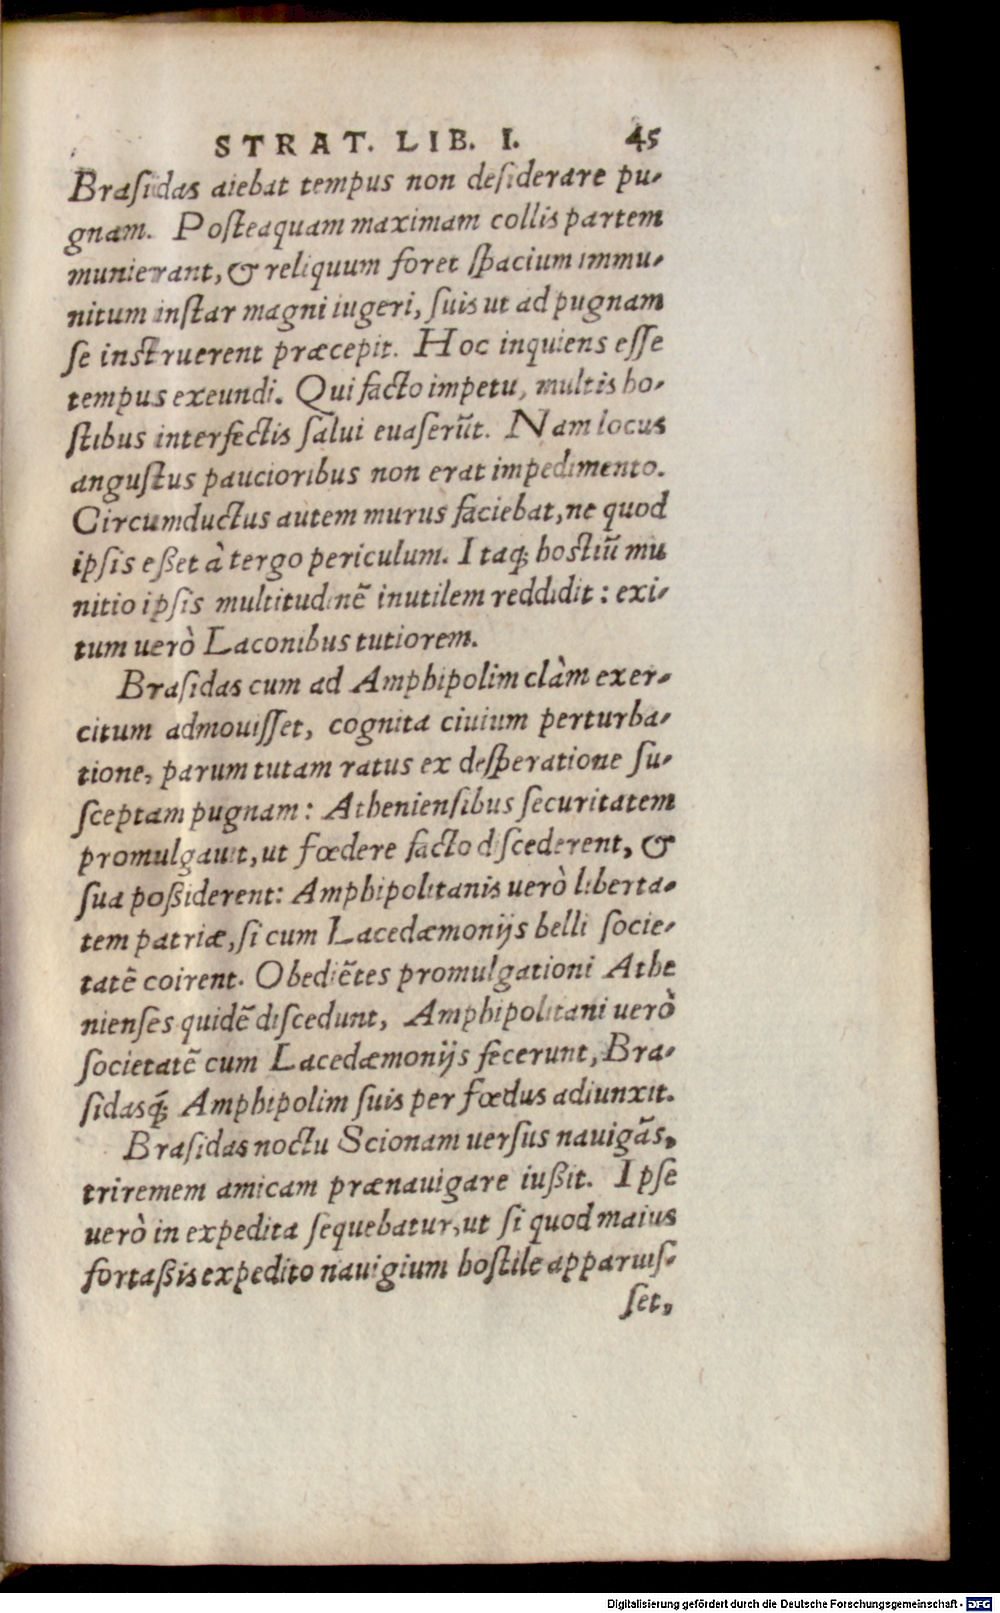 STRAT. LIB. I. 45
Braſidas aiebat tempus non deſiderare pu-
gnam. Poſteaquam maximam collis partem
munierant, & reliquum foret ſpacium immu-
nitum inſtar magni iugeri, ſuis ut ad pugnam
ſe inſtruerent præcepit. Hoc inquiens eſſe
tempus exeundi. Qui facto impetu, multis ho-
ſtibus interfectis ſalui euaſerũt. Nam locus
anguſtus paucioribus non erat impedimento.
Circumductus autem murus faciebat, ne quod
ipſis eßet à tergo periculum. Itaq; hoſtiũ mu
nitio ipſis multitudinẽ inutilem reddidit: exi-
tum uerò Laconibus tutiorem.
Braſidas cum ad Amphipolim clàm exer-
citum admouiſſet, cognita ciuium perturba-
tione, parum tutam ratus ex deſperatione ſu-
ſceptam pugnam: Athenienſibus ſecuritatem
promulgauit, ut fœdere facto diſcederent, &
ſua poßiderent: Amphipolitanis uerò liberta-
tem patriæ, ſi cum Lacedæmonijs belli ſocie-
tatẽ coirent. Obediẽtes promulgationi Athe
nienſes quidẽ diſcedunt, Amphipolitani uerò
ſocietatẽ cum Lacedæmonijs fecerunt, Bra-
ſidasq́; Amphipolim ſuis per fœdus adiunxit.
Braſidas noctu Scionam uerſus nauigãs,
triremem amicam prænauigare iußit. Ipſe
uerò in expedita ſequebatur, ut ſi quod maius
fortaßis expedito nauigium hoſtile apparuiſ-
ſet,
Digitalisierung gefördert durch die Deutsche Forschungsgemeinschaft - DFG